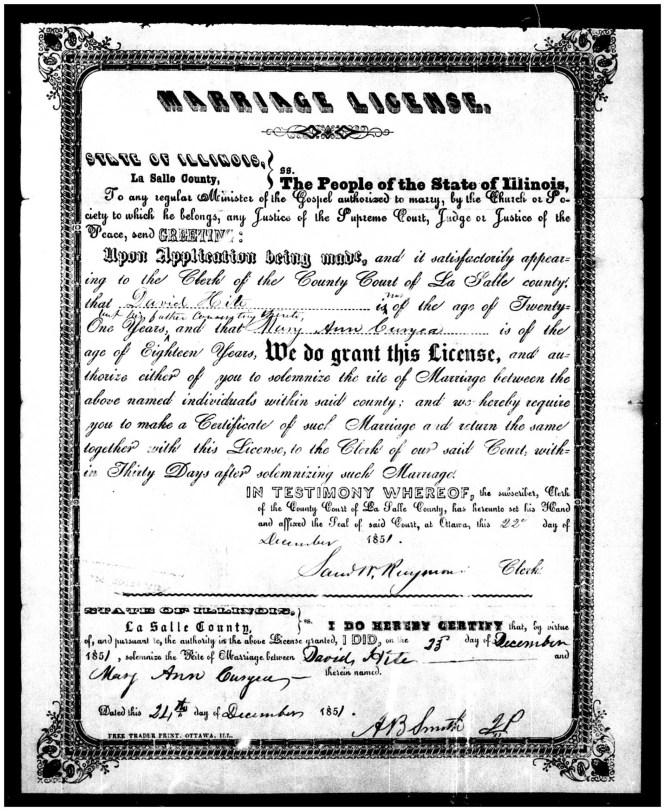 MARRIAGE LICENSE.
STATE OF ILLINOIS, } ss.
La Salle County,
The People of the State of Illinois,
To any regular Minister of the Gospel authorized to marry, by the Church or So-
ciety to which he belongs, any Justice of the Supreme Court, Judge or Justice of the
Peace, send GREETING:
Upon Application being made, and it satisfactorily appear-
ing to the Clerk of the County Court of La Salle county,
that David Hite is not of the age of Twenty-
but his father consenting thereto,
One Years, and that Mary Ann Curyea is of the
age of Eighteen Years, We do grant this License, and au-
thorize either of you to solemnize the rite of Marriage between the
above named individuals within said county; and we hereby require
you to make a Certificate of such Marriage and return the same
together with this License, to the Clerk of our said Court, with-
in Thirty Days after solemnizing such Marriage.
IN TESTIMONY WHEREOF, the subscriber, Clerk
of the County Court of La Salle County, has hereunto set his Hand
and affixed the Seal of said Court, at Ottawa, this 22d day of
December 1851.
Saml W. Raymond Clerk.
STATE OF ILLINOIS, } ss.
La Salle County,
I DO HEREBY CERTIFY that, by virtue
of, and pursuant to, the authority in the above License granted, I DID, on the 23 day of December
1851, solemnize the Rite of Marriage between David Hite and
Mary Ann Curyea therein named.
Dated this 24th day of December 1851.
A B Smith JP
FREE TRADER PRINT. OTTAWA, ILL.